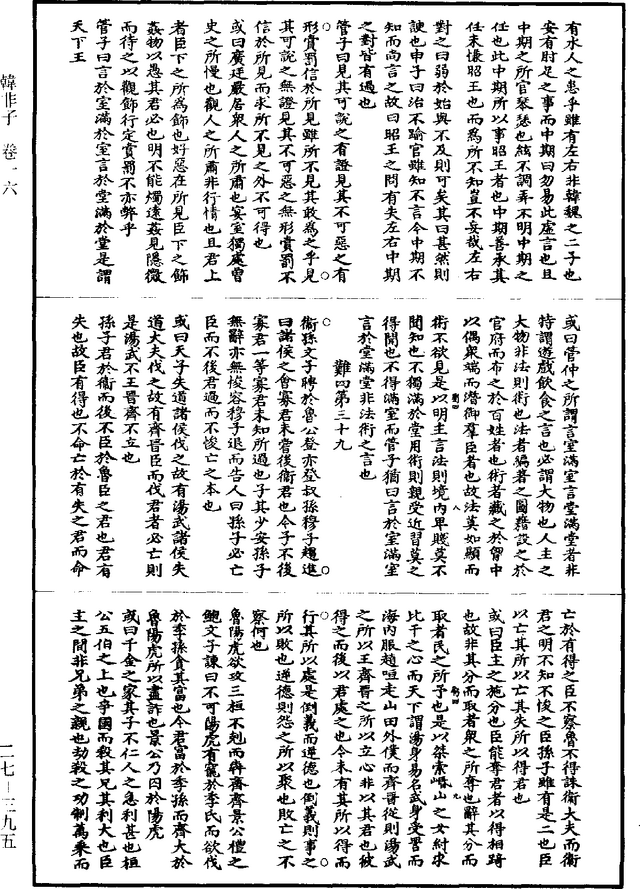 韓非子 卷一六
有水人之患乎雖有左右非韓魏之二子也
安有肘足之事而中期曰勿易此虛言也且
中期之所官琴瑟也絃不調弄不明中期之
任也此中期所以事昭王者也中期善承其
任未慊昭王也而為所不知豈不妄哉左右
對之曰弱於始與不及則可矣其曰甚然則
諛也申子曰治不踰官雖知不言今中期不
知而尚言之故曰昭王之問有失左右中期
之對皆有過也
管子曰見其可說之有證見其不可惡之有
形賞罰信於所見雖所不見其敢為之乎見
其可說之無證見其不可惡之無形賞罰不
信於所見而求所不見之外不可得也
或曰廣廷嚴居衆人之所肅也宴室獨處曾
史之所僈也觀人之所肅非行情也且君上
者臣下之所為飾也好惡在所見臣下之飾
姦物以愚其君必也明不能燭遠姦見隱微
而待之以觀飾行定賞罰不亦弊乎
管子曰言於室滿於室言於堂滿於堂是謂
天下王
或曰管仲之所謂言室滿室言堂滿堂者非
特謂遊戲飲食之言也必謂大物也人主之
大物非法則術也法者編著之圖籍設之於
官府而布之於百姓者也術者藏之於胷中
以偶衆端而潛御羣臣者也故法莫如顯而
術不欲見是以明主言法則境內卑賤莫不
聞知也不獨滿於堂用術則親愛近習莫之
得聞也不得滿室而管子猶曰言於室滿室
言於堂滿堂非法術之言也
難四第三十九
衞孫文子聘於魯公登亦登叔孫穆子趨進
曰諸侯之會寡君未嘗後衞君也今子不後
寡君一等寡君未知所過也子其少安孫子
無辭亦無悛容穆子退而告人曰孫子必亡
臣而不後君過而不悛亡之本也
或曰天子失道諸侯伐之故有湯武諸侯失
道大夫伐之故有齊晉臣而伐君者必亡則
是湯武不王晉齊不立也
孫子君於衞而後不臣於魯臣之君也君有
失也故臣有得也不命亡於有失之君而命
亡於有得之臣不察魯不得誅衞大夫而衞
君之明不知不悛之臣孫子雖有是二也臣
以亡其所以亡其失所以得君也
或曰臣主之施分也臣能奪君者以得相踦
也故非其分而取者衆之所奪也辭其分而
取者民之所予也是以桀索岷山之女紂求
比干之心而天下謂湯身易名武身受詈而
海內服趙咺走山田外僕而齊晉從則湯武
之所以王齊晉之所以立心非以其君也彼
得之而後以君處之也今未有其所以得而
行其所以處是倒義而逆德也倒義則事之
所以敗也逆德則怨之所以聚也敗亡之不
察何也
魯陽虎欲攻三桓不剋而犇齊齊景公禮之
鮑文子諫曰不可陽虎有寵於季氏而欲伐
於季孫貪其富也今君富於季孫而齊大於
魯陽虎所以盡詐也景公乃囚於陽虎
或曰千金之家其子不仁人之急利甚也桓
公五伯之上也爭國而殺其兄其利大也臣
主之間非兄弟之親也劫殺之功制萬乘而
二七—三九五